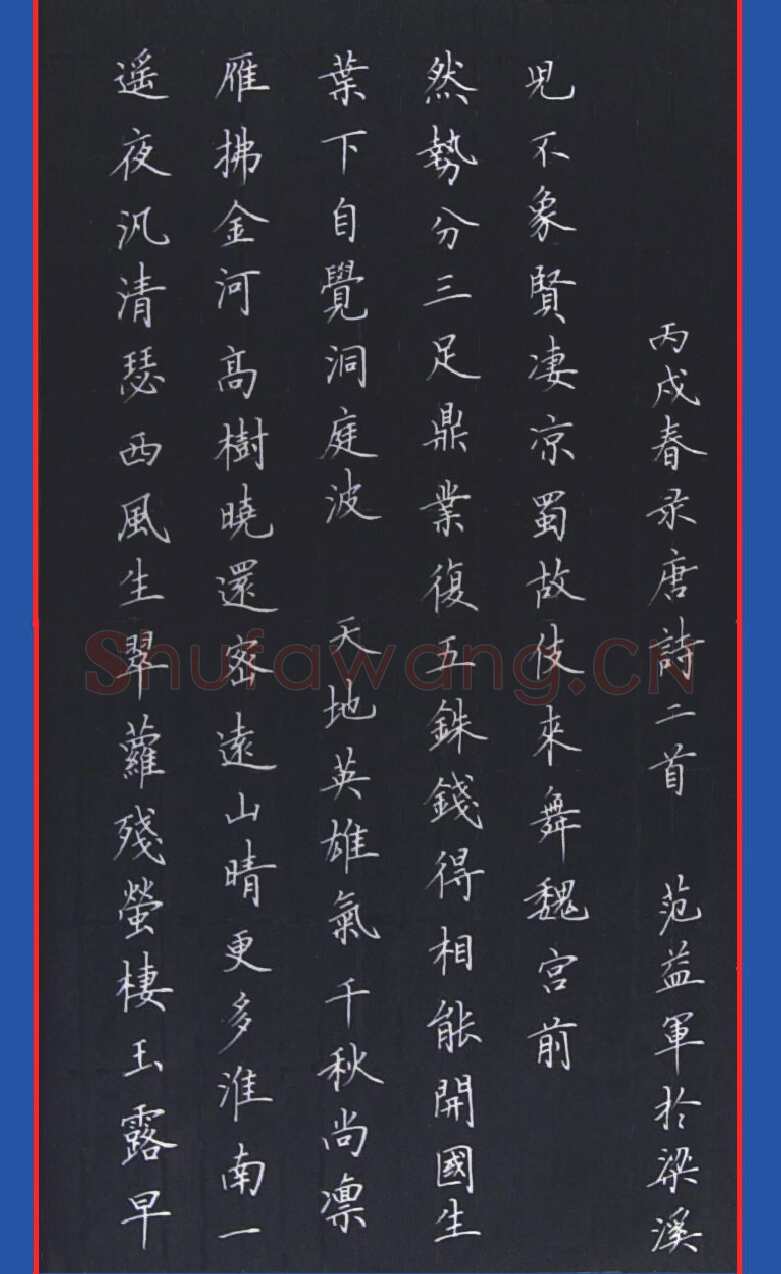 遥夜汎清瑟西風生翠蘿殘螢棲玉露早
雁拂金河高樹曉還密遠山晴更多淮南一
葉下自覺洞庭波 天地英雄氣千秋尚凛
然勢分三足鼎業復五銖錢得相能開國生
兒不象賢凄凉蜀故伎來舞魏宫前
丙戌春录唐詩二首 范益軍於梁溪
Shufawang.CN